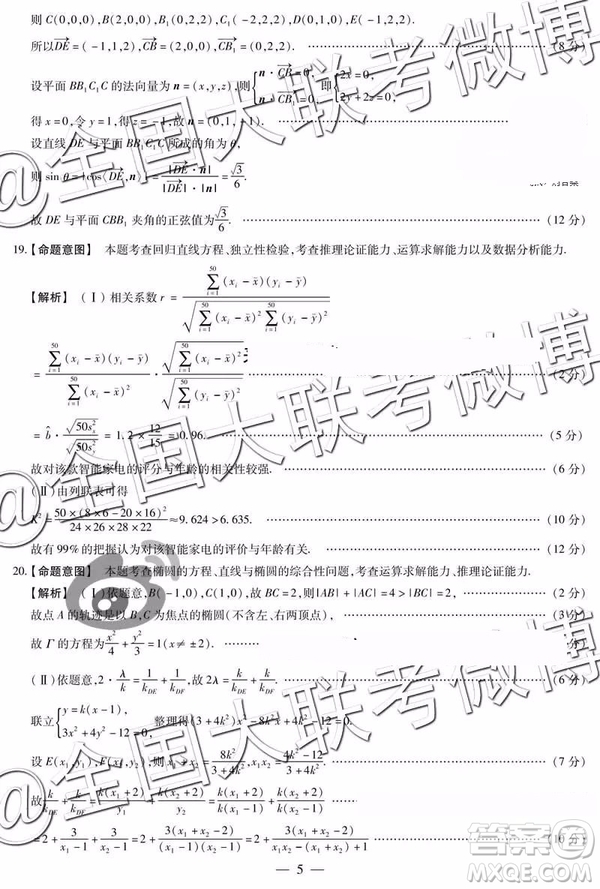 则 C(0,0,0),B(2,0,0),B₁(0,2,2),C₁(-2,2,2),D(0,1,0),E(-1,2,2).
所以DE=(-1,1,2),CB=(2,0,0),CB₁=(0,2,2). (8 分)
设平面 BB₁C₁C 的法向量为 n=(x,y,z),则{n·CB=0, n·CB₁=0, 即{2x=0, 2y+2z=0.
得 x=0,令 y=1,得 z=-1,故 n=(0,1,-1).
设直线 DE 与平面 BB₁C₁C 所成的角为 θ,
则 sin θ=|cos⟨DE,n⟩|=|DE·n|/(|DE|·|n|)=√3/6.
故 DE 与平面 CBB₁ 夹角的正弦值为√3/6. (12 分)
19.【命题意图】 本题考查回归直线方程、独立性检验,考查推理论证能力、运算求解能力以及数据分析能力.
【解析】 (Ⅰ)相关系数 r=∑(i=1→50)(xᵢ-x̄)(yᵢ-ȳ)/√(∑(i=1→50)(xᵢ-x̄)²∑(i=1→50)(yᵢ-ȳ)²)
=∑(i=1→50)(xᵢ-x̄)(yᵢ-ȳ)/∑(i=1→50)(xᵢ-x̄)²·√(∑(i=1→50)(xᵢ-x̄)²)/√(∑(i=1→50)(yᵢ-ȳ)²) (2 分)
=b̂·√(50sₓ²)/√(50s_y²)=1.2×12/15=0.96. (5 分)
故对该款智能家电的评分与年龄的相关性较强. (6 分)
(Ⅱ)由列联表可得
K²=50×(8×6-20×16)²/(24×26×28×22)≈9.624>6.635. (10 分)
故有 99%的把握认为对该智能家电的评价与年龄有关. (12 分)
20.【命题意图】 本题考查椭圆的方程、直线与椭圆的综合性问题,考查运算求解能力、推理论证能力.
【解析】 (Ⅰ)依题意,B(-1,0),C(1,0),故 BC=2,则|AB|+|AC|=4>|BC|=2, (2 分)
故点 A 的轨迹是以 B,C 为焦点的椭圆(不含左、右两顶点), (3 分)
故 Γ 的方程为x²/4+y²/3=1(x≠±2).
(Ⅱ)依题意,2·λ/k=1/k_DE+1/k_DF,故 2λ=k/k_DE+k/k_DF. (6 分)
联立{y=k(x-1), 3x²+4y²-12=0, 整理得(3+4k²)x²-8k²x+4k²-12=0.
设 E(x₁,y₁),F(x₂,y₂),则x₁+x₂=8k²/(3+4k²),x₁x₂=(4k²-12)/(3+4k²). (7 分)
故k/k_DE+k/k_DF=k(x₁+2)/y₁+k(x₂+2)/y₂=k(x₁+2)/k(x₁-1)+k(x₂+2)/k(x₂-1)
=2+3/(x₁-1)+3/(x₂-1)=2+3(x₁+x₂-2)/((x₁-1)(x₂-1))=2+3(x₁+x₂-2)/(x₁x₂-(x₁+x₂)+1) (10 分)
— 5 —
@全国大联考微博
@全国大联考微博
@全国大联考微博
作业帮
MXQE.COM